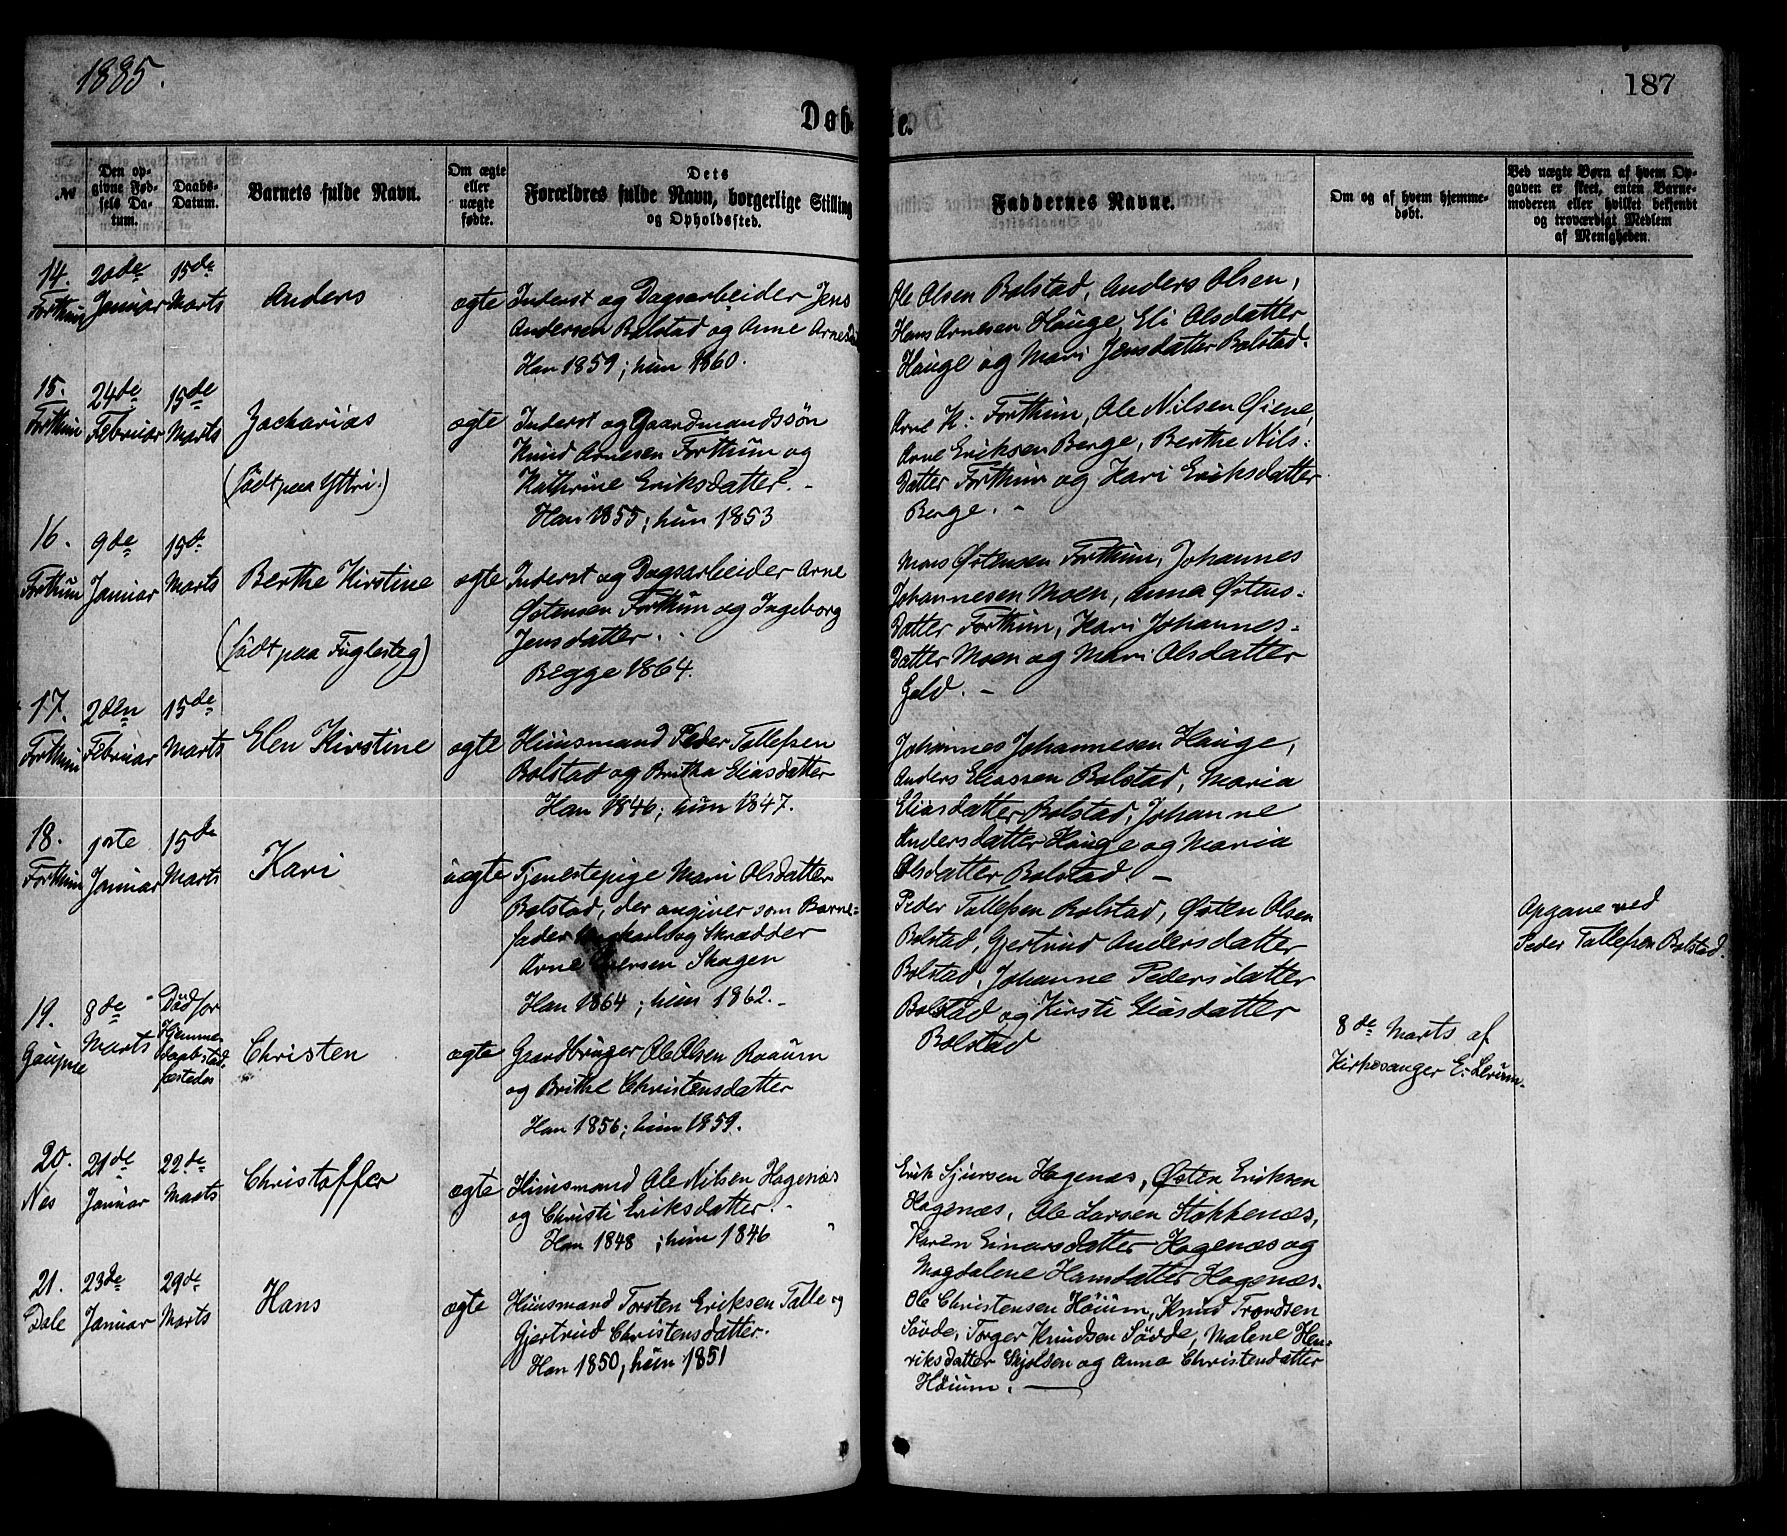 1885.
187
Døb
te.
№
Den op-
givne Fød-
sels Da-
tum.
Daabs-
Datum.
Barnets fulde Navn.
Om ægte
eller
uægte
fødte.
Dets
Forældres fulde Navn, borgerlige Stilling
og Opholdssted.
Faddernes Navne.
Om og af hvem hjemme-
døbt.
Ved uægte Børn af hvem Op-
gaven er skeet, enten Barne-
moderen eller hvilket bekjendt
og troværdigt Medlem
af Menigheden.
14.
Forthun
20de
Januar
15de
Marts
Anders
ægte
Inderst og Dagsarbeider Jens
Andersen Bolstad og Anne Arnesd
Han 1859; hun 1860.
Ole Olsen Bolstad, Anders Olsen,
Hans Arnesen Hauge, Eli Olsdatter
Hauge og Mari Jensdatter Bolstad.
15.
Forthun
24de
Februar
15de
Marts
Zacharias
(født paa Yttri.)
ægte
Inderst og Gaardmandssøn
Knud Arnesen Forthun og
Kathrine Eriksdatter. -
Han 1855; hun 1853
Arne K: Forthun, Ole Nilsen Øiene,
Arne Eriksen Berge, Berthe Nils:
datter Forthun og Kari Eriksdatter
Berge. -
16.
Forthun
9de
Januar
15de
Marts
Berthe Kirstine
(født paa Fuglesteg)
ægte
Inderst og Dagsarbeider Arne
Østensen Forthun og Ingeborg
Jensdatter.
Begge 1864.
Mons Østensen Forthun, Johannes
Johannesen Moen, Anna Østens:
datter Forthun, Kari Johannes-
datter Moen og Mari Olsdatter
Geld. -
17.
Forthun
2den
Februar
15de
Marts
Elen Kirstine
ægte
Huusmand Peder Tollefsen
Bolstad og Britha Eliasdatter
Han 1846; hun 1847.
Johannes Johannesen Hauge,
Anders Eliassen Bolstad, Maria
Eliasdatter Bolstad, Johanne
Andersdatter Hauge og Maria
Olsdatter Bolstad. -
18.
Forthun
1ste
Januar
15de
Marts
Kari
uægte
Tjenestepige Mari Olsdatter
Bolstad, der angiver som Barne-
fader Ungkarl og Skrædder
Arne Skagen
Han 1864; hun 1862. -
Peder Tollefsen Bolstad, Østen Olsen
Bolstad, Gjertrud Andersdatter
Bolstad, Johanne Pedersdatter
Bolstad og Kirsti Eliasdatter
Bolstad
Opgave ved
Peder Tollefsen Bolstad.
19.
Gaupne
8de
Marts
Død før
Hjemme-
daabstad-
festedes
Christen
ægte
Gaardbruger Ole Olsen Raaum
og Brithe Christensdatter
Han 1856; hun 1859.
8de Marts af
Kirkesanger E. Lerum.
20.
Nes
21de
Januar
22de
Marts
Christoffer
ægte
Huusmand Ole Nilsen Hagenæs
og Christi Eriksdatter. -
Han 1848; hun 1846
Erik Sjursen Hagenæs, Østen Eriksen
Hagenæs, Ole Larsen Stokkenæs,
Karen Einarsdatter Hagenæs og
Magdalene Hansdatter Hagenæs.
21.
Dale
23de
Januar
29de
Marts
Hans
ægte
Huusmand Torsten Eriksen Talle og
Gjertrud Christensdatter.
Han 1850; hun 1851
Ole Christensen Høium, Knud Trondsen
Søvde, Torger Knudsen Søvde, Malene Hen-
riksdatter Skjolden og Anna Christensdatter
Høium.